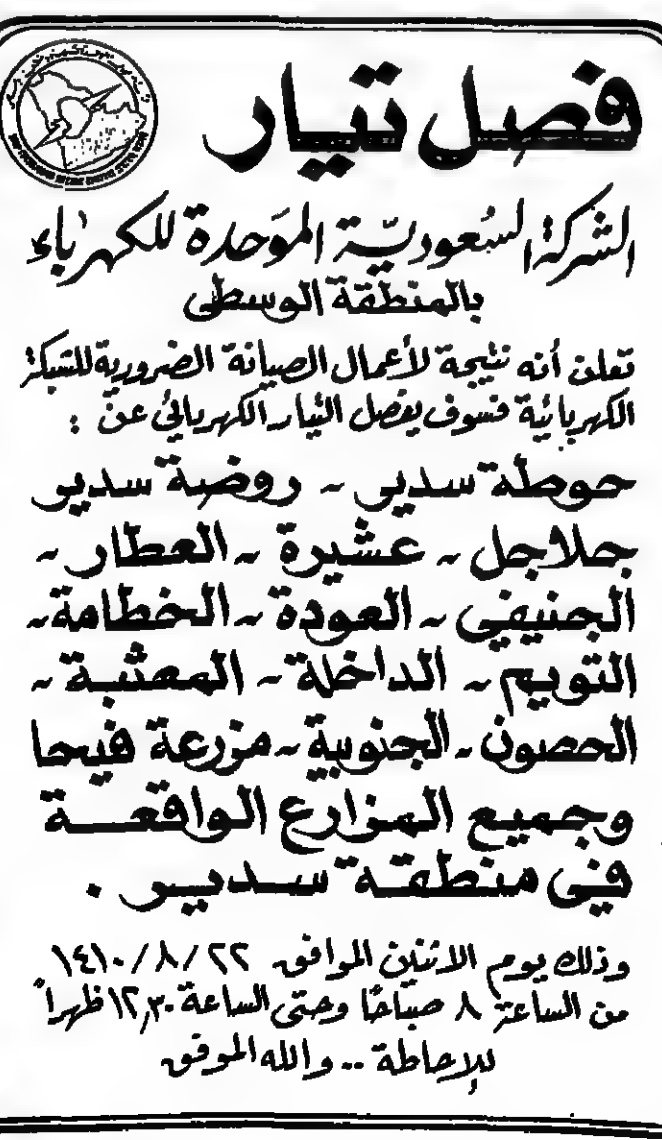 فصل تيار
الشركة السعودية الموحدة للكهرباء
بالمنطقة الوسطى
تعلن أنه نتيجة لأعمال الصيانة الضرورية للشبكة
الكهربائية فسوف يفصل التيار الكهربائي عن :
حوطة سدير ~ روضة سدير
جلاجل ~ عشيرة ~ العطار ~
الجنيفي ~ العودة ~ الخطامة ~
التويم ~ الداخلة ~ المعشبة ~
الحصون ~ الجنوبية ~ مزرعة فيحا
وجميع المزارع الواقعة
في منطقة سدير .
وذلك يوم الاثنين الموافق ٢٢ /٨ /١٤١٠
من الساعة ٨ صباحًا وحتى الساعة ١٢,٣٠ ظهراً
للإحاطة .. والله الموفق